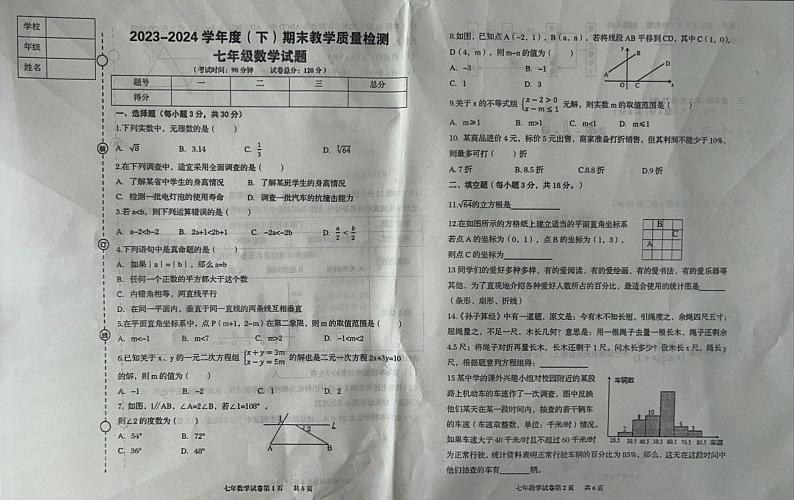 学校
年级
姓名
2023-2024 学年度(下)期末教学质量检测
七年级数学试题
(考试时间:90分钟 试卷总分:120分)
题号 一 二 三 总分
得分
一、选择题(每小题3分,共30分)
1.下列实数中,无理数的是( )
A. √8 B. 3.14 C. 1/3 D. ∛64
2.在下列调查中,适宜采用全面调查的是( )
A. 了解某省中学生的身高情况 B. 了解某班学生的身高情况
C. 检测一批电灯泡的使用寿命 D. 调查一批汽车的抗撞击能力
3.若a<b,则下列运算错误的是( )
A. a-2<b-2 B. 2a+1<2b+1 C. -2a<-2b D. a/2 < b/2
4.下列语句中是真命题的是( )
A. 如果|a|=|b|,那么a=b
B. 任何一个正数的平方都大于这个数
C. 内错角相等,两直线平行
D. 在同一平面内,垂直于同一直线的两条线互相垂直
5.在平面直角坐标系中,点P(m+1,2-m)在第二象限,则m的取值范围是( )
A. m<-1 B. m<7 C. m>2 D. -1<m<2
6.已知关于x、y的一元二次方程组 {x+y=3m x-y=5m 的解也是二元一次方程2x+3y=10
的解,则m的值为( )
A. -1 B. -2 C. 1 D. 2
7,如图,l∥AB,∠A=2∠B,若∠1=108°,
则∠2的度数为( )
A. 54° B. 72°
C. 36° D. 48°
l
1
2
A B
装
订
线
七年数学试卷第1页 共6页
8.如图,已知点A(-2,1),B(a,n),若将线段AB平移到CD,其中C(1,0),
D(4,m),则m-n的值为( )
A. -3 B. -1
C. 1 D. 3
y
B
D
A
O C x
9.关于x的不等式组 {x-2>0 x-m≤1 无解,则实数m的取值范围是( )
A. m≥1 B. m>1 C. m<1 D. m≤1
10. 某商品进价4元,标价5元出售,商家准备打折销售,但其利润不能少于10%,
则最多可打( )折
A. 7折 B. 8.5折 C.8.8折 D.9折
二、填空题(每小题3分,共18分。)
11.√64的立方根是
12.在如图所示的方格纸上建立适当的平面直角坐标系
若点A的坐标为(0,1),点B的坐标为(1,3),
则点C的坐标为
B
C
A
13 同学们的爱好多种多样,有的爱阅读、有的爱绘画、有的爱书法、有的爱乐器等
其他,为了直观地介绍各种爱好人数所占的百分比,最适合使用的统计图是
(条形、扇形、折线)
14.《孙子算经》中有一道题,原文是:今有木不知长短,引绳度之,余绳四尺五寸;
屈绳量之,不足一尺,木长几何?意思是:用一根绳子去量一根长木,绳子还剩余
4.5尺;将绳子对折再量长木,长木还剩于1尺。问木长多少?设木长x尺,绳长y
尺,根据题意列方程组得:
15 某中学的课外兴趣小组对校园附近的某段
路上机动车的车速作了一次调查,图中反映
他们某天在某一段时间内,抽查的若干辆车
的车速(车速取整数,单位:千米/时)情况。
如果车速大于40千米/时且不超过60千米/时
为正常行驶,统计资料表明正常行驶车辆的百分比为85%,那么,这天在这段时间中
他们抽查的车有 辆。
车辆数
10
5
20.5 30.5 40.5 50.5 60.5 70.5 80.5 车速
七年数学试卷第2页 共6页